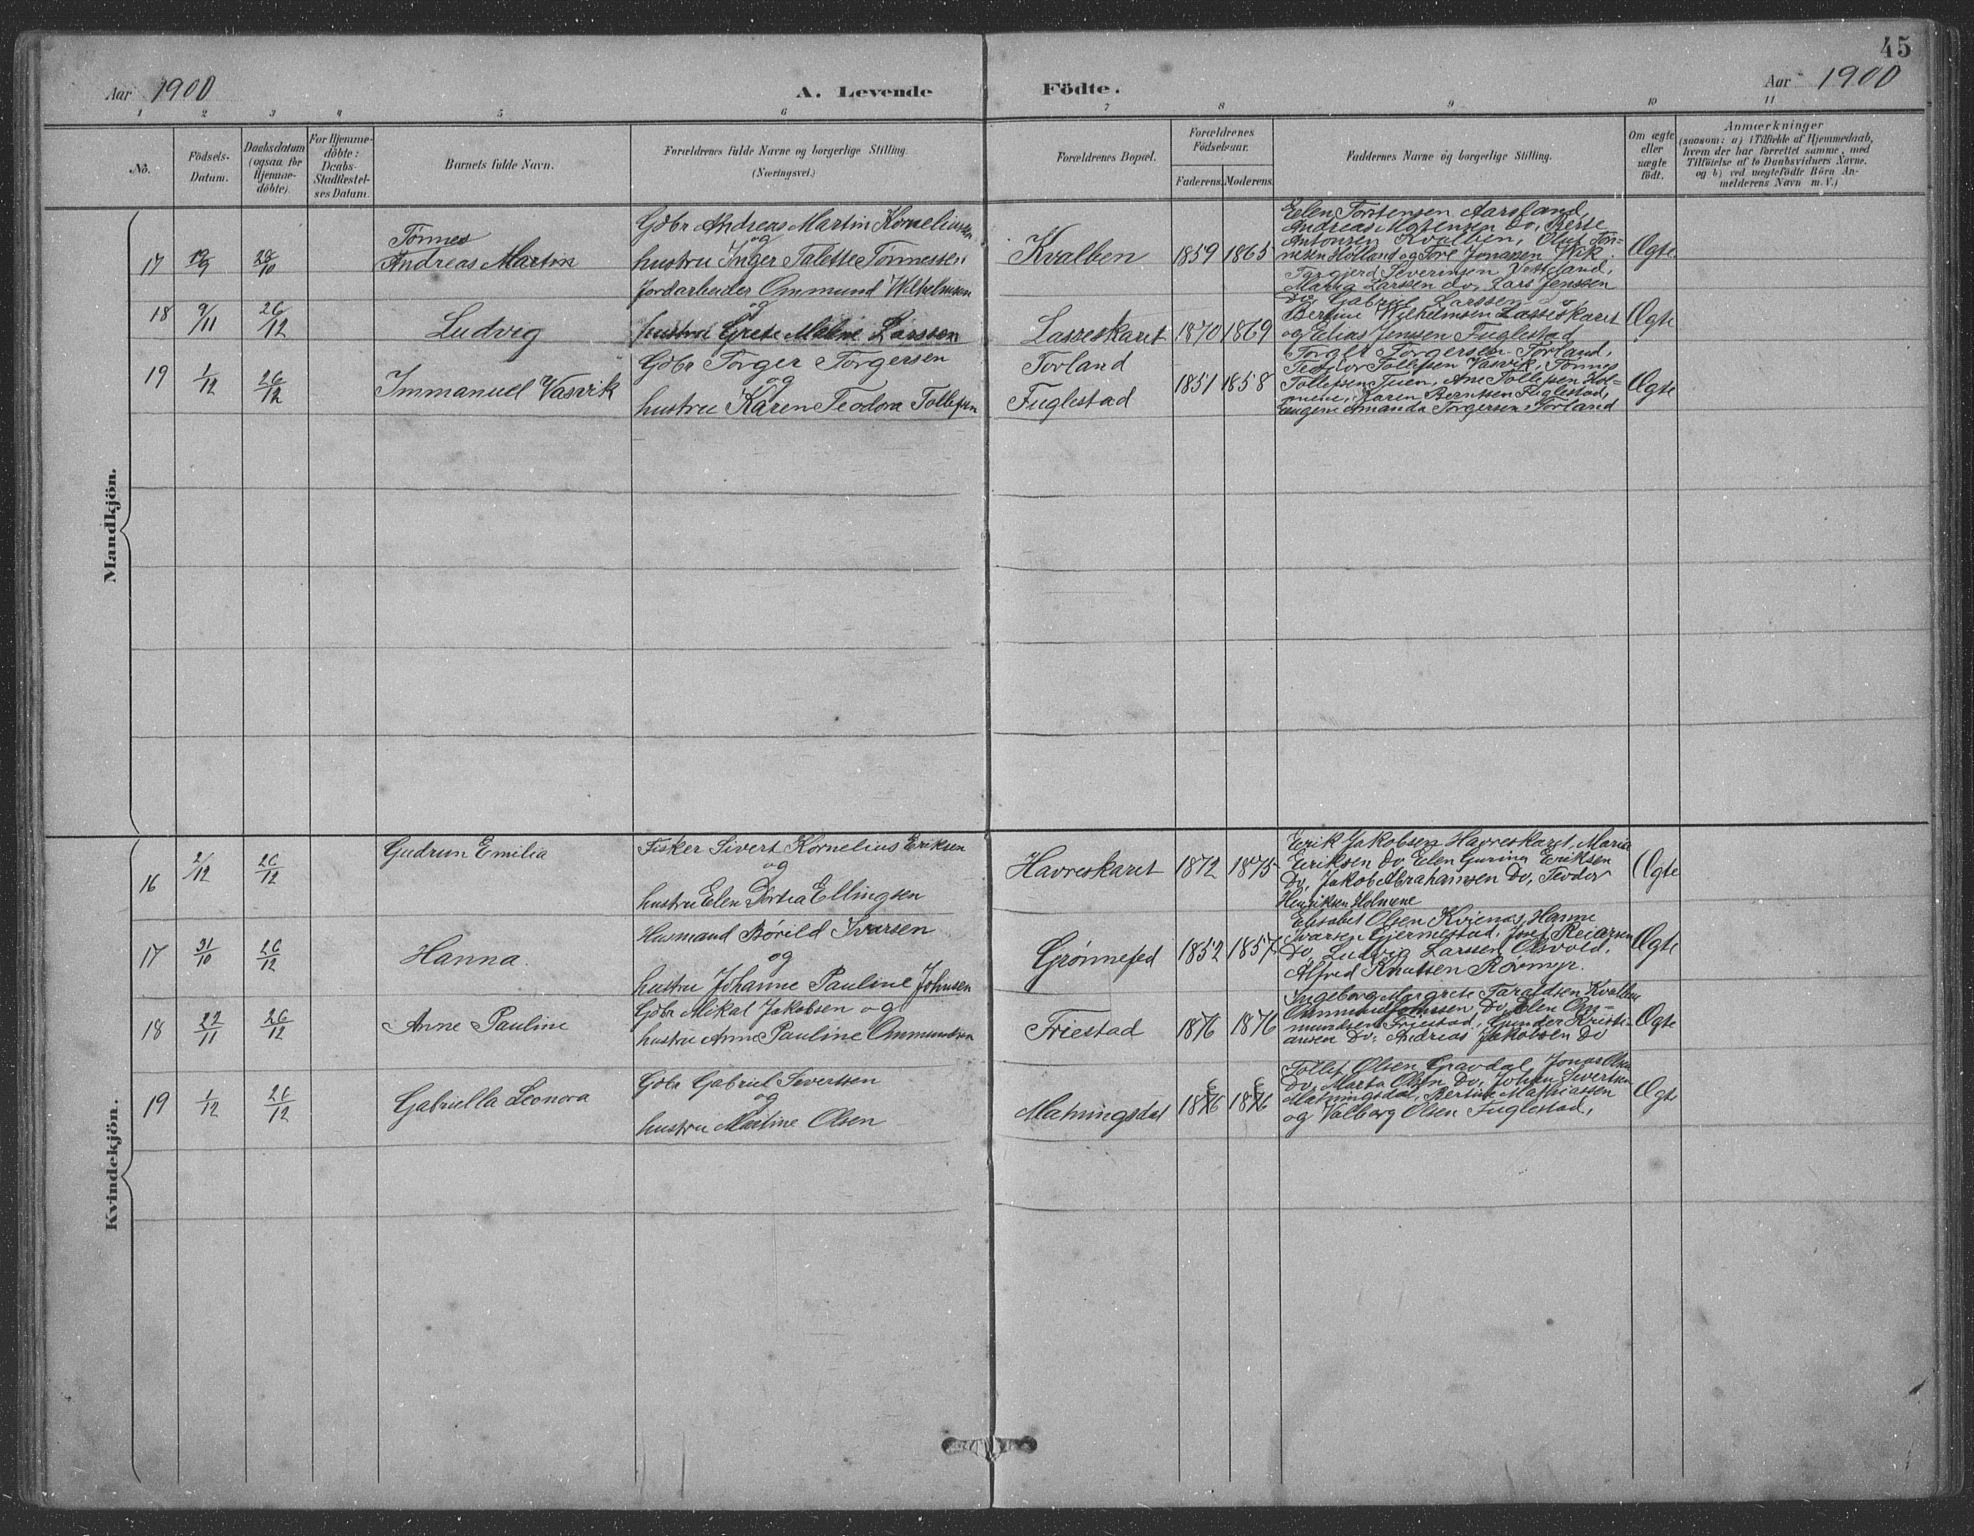 45
Aar 1900
A. Levende
Födte.
Aar 1900
1 2 3 4 5 6 7 8 9 10 11
No.
Födsels-
Datum.
Daabsdatum
(ogsaa for
Hjemme-
döbte).
For Hjemme-
döbte:
Daabs-
Stadfæstel-
ses Datum.
Barnets fulde Navn.
Forældrenes fulde Navne og borgerlige Stilling.
(Næringsvei.)
Forældrenes Bopæl.
Forældrenes
Födselsaar.
Faderens. Moderens.
Faddernes Navne og borgerlige Stilling.
Om ægte
eller
uægte
födt.
Anmærkninger
(saasom: a) i Tilfælde af Hjemmedaab,
hvem der har forrettet samme, med
Tilföielse af to Daabsvidners Navne,
og b) ved uægtefödte Börn An-
melderens Navn m. V.)
Mandkjön.
17
19/9
28/10
Tønnes
Andreas Martin
Gdbr Andreas Martin Kornelius
og
hustru Inger Talette Tønnesen
Kvalben
1859 1865
Elen Torstensen Aarsland,
Andreas Mortensen Do, Berte
Antonsen Kvalben, Oluf Tøn-
nesen Holland og Tore Jonassen Vik
Ægte
18
9/11
26/12
Ludvig
Jordarbeider Ommund Wilhelmsen
og
hustru Grete Malene Larssen
Lasseskaret
1870 1869
Torgjerd Severinsen
Maria Larssen do, Lars Jenssen
Do, Gabriel Larssen
Bertine Wilhelmsen Lasseskaret
og Elias Jenssen Fuglestad
Ægte
19
1/12
26/12
Immanuel Vasvik
Gdbr Torger Torgersen
og
hustru Karen Teodora Tollefsen
Torland
Fuglestad
1851 1858
Torger Torgersen Torland,
Teodor Tollefsen Vasvik, Tønnes
Tollefsen Tuen, Ane Tollefsen Hol-
mene, Karen Berntsen Fuglestad,
Eugene Amanda Torgersen Torland
Ægte
Kvindekjön.
16
2/12
26/12
Gudrun Emilia
Fisker Sivert Kornelius Eriksen
og
hustru Elen Dortea Ellingsen
Havreskaret
1872 1875
Erik Jakobsen Havreskaret, Maria
Eriksen Do, Elen Gurina Eriksen
Do, Jakob Abrahamsen Do, Teodor
Henriksen Holmene
Ægte
17
31/10
26/12
Hanna.
Husmand Børild Ivarsen
og
hustru Johanne Pauline Johnsen
Grønnefed
1852 1857
Elisabet Olsen Kvienas, Hanne
Ivarsen Gjermestad, Josef Reiarsen
Do, Ludvig Larssen Osvold,
Alfred Knutsen Røvmyr.
Ægte
18
22/11
26/12
Anne Pauline
Gdbr Mikal Jakobsen og
hustru Anne Pauline Ommundsen
Friestad
1876 1876
Ingeborg Margrete Taraldsen Kvalben
Ommund Do, Elen Om-
mundsen Friestad, Gunder Kristi-
ansen Do, Andreas Jakobsen Do
Ægte
19
1/12
26/12
Gabriella Leonora
Gdbr Gabriel Sivertsen
og
hustru Martine Olsen
Matningsdal
1866 1866
Tollef Olsen Gravdal, Jonas Olsen
Do, Marta Olsen Do, Johan Sivertsen
Matningsdal, Bertine Mathiassen
og Valborg Olsen Fuglestad,
Ægte